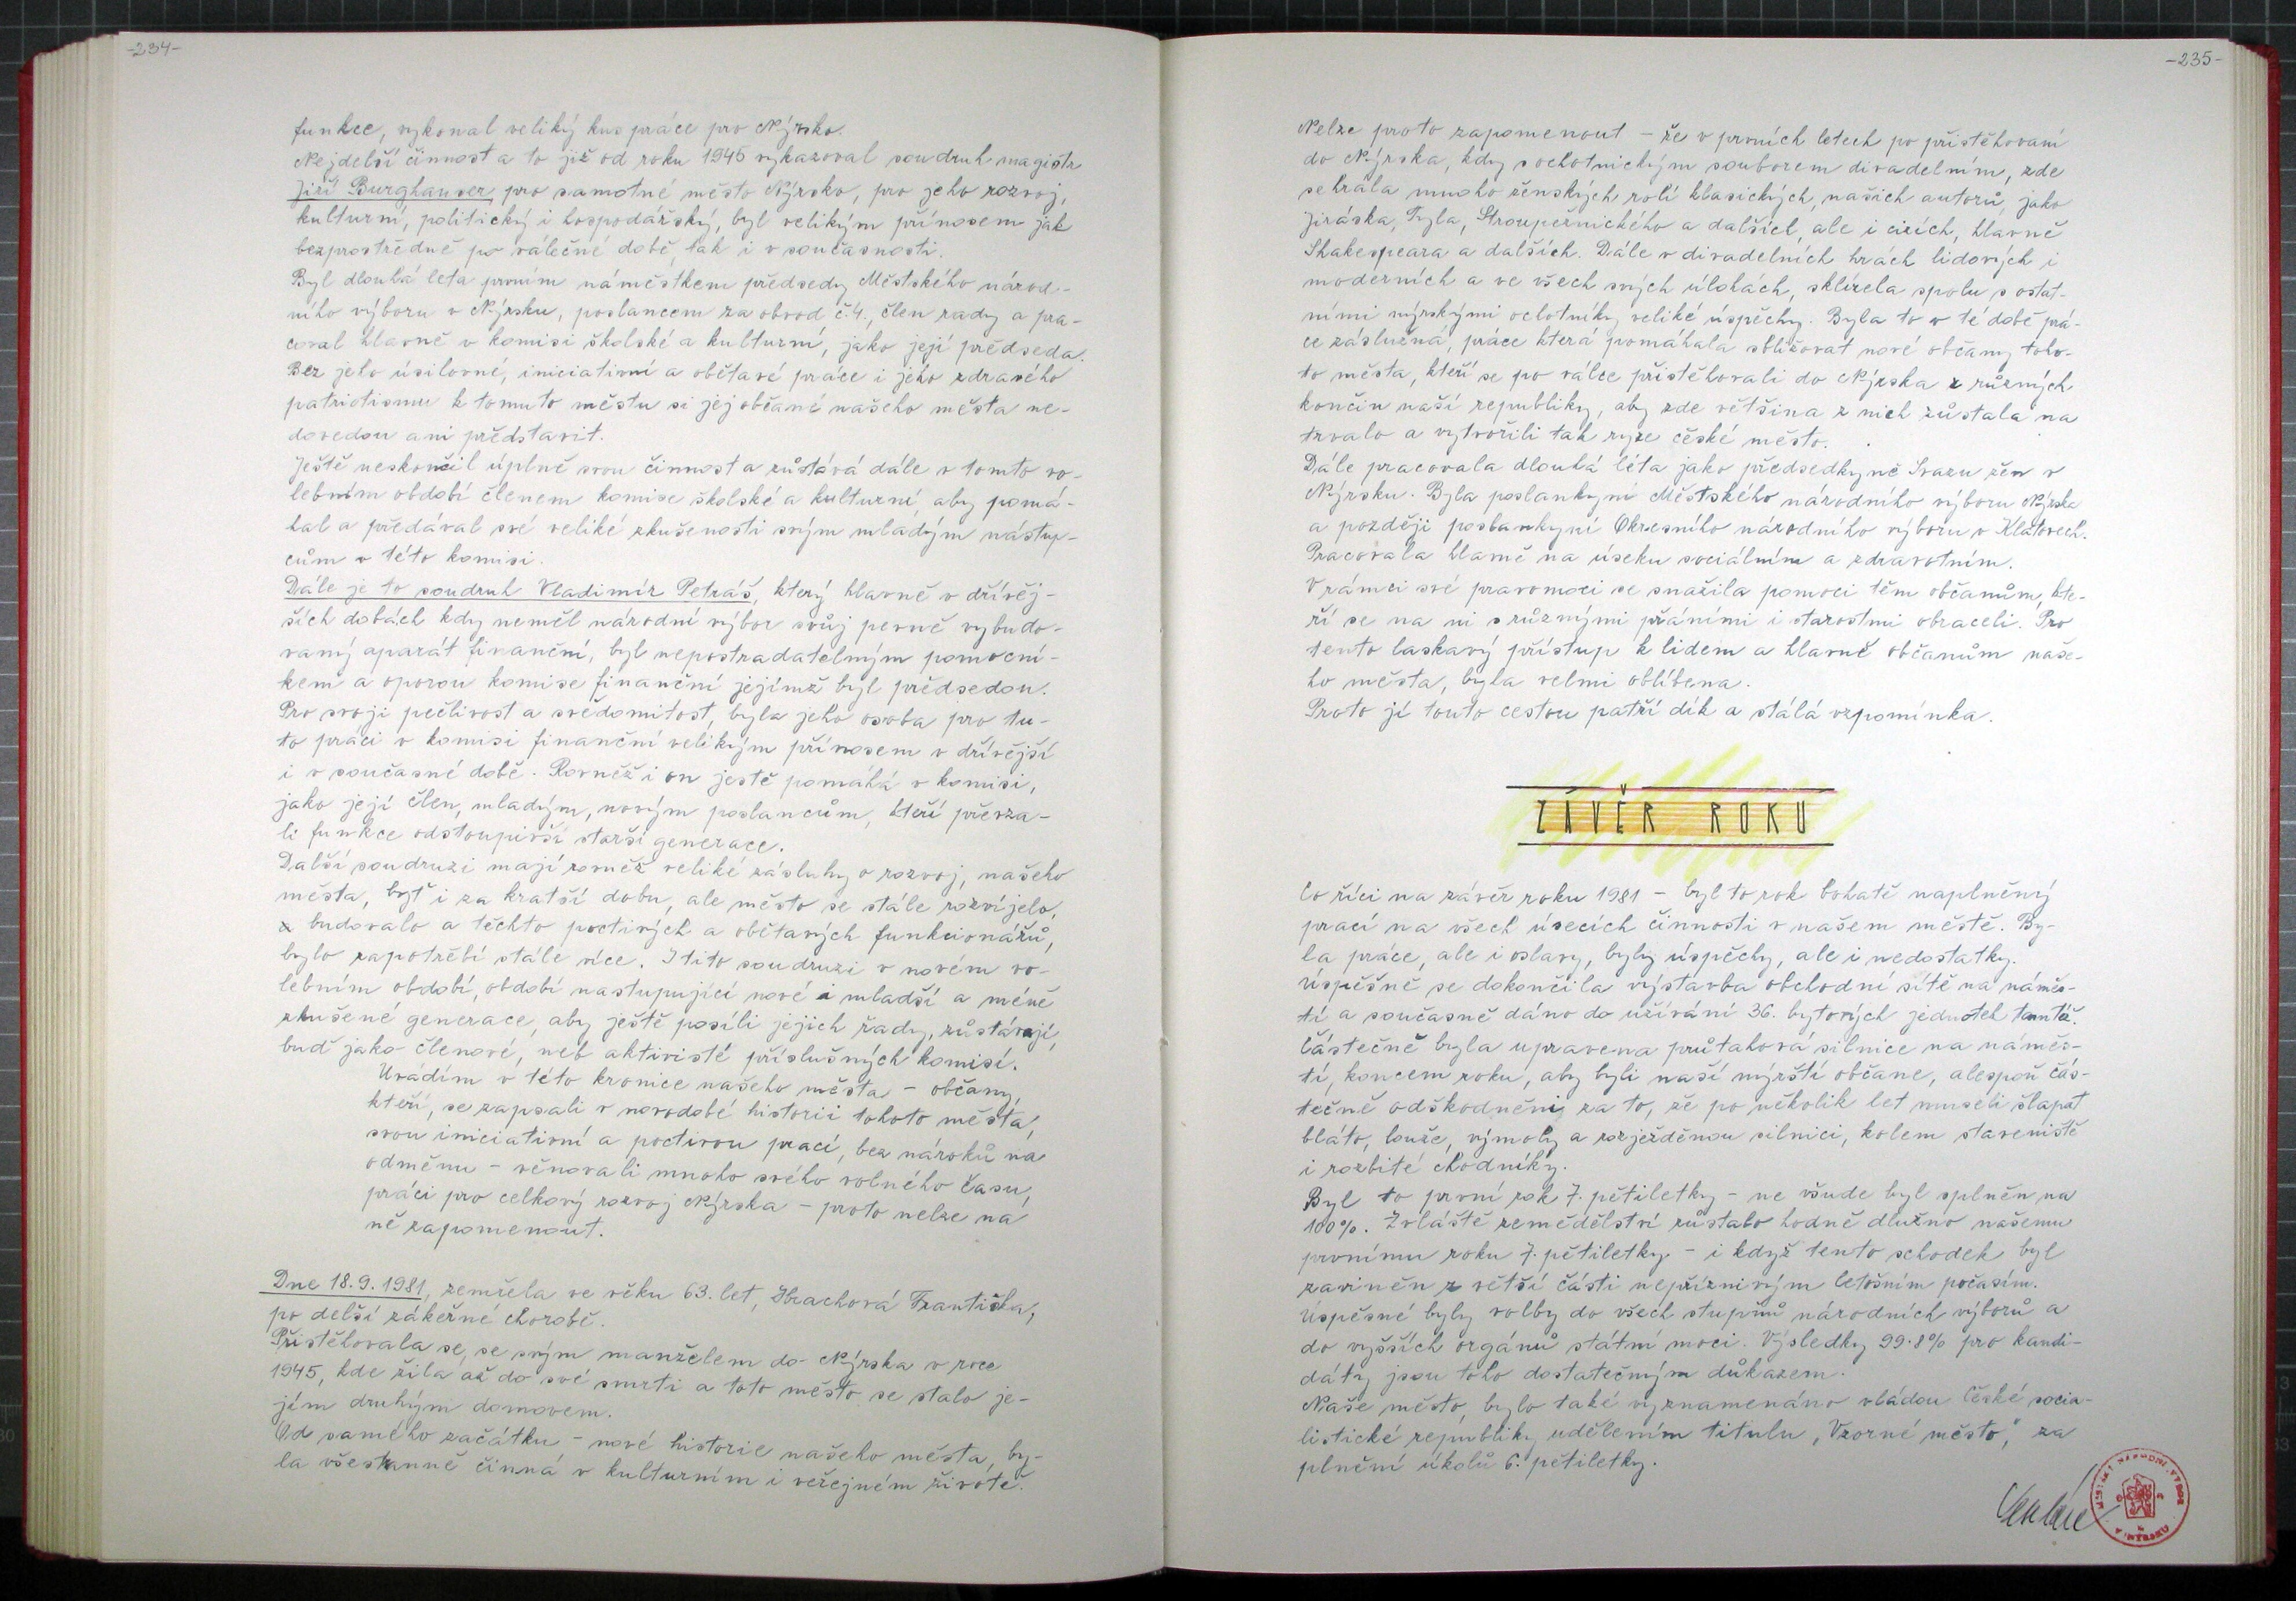 -234-
funkce, vykonal veliký kus práce pro Nýrsko.
Nejdelší činnost a to již od roku 1945 vykazoval soudruh magistr
Jiří Burghauser, pro samotné město Nýrsko, pro jeho rozvoj,
kulturní, politický i hospodářský, byl velikým přínosem jak
bezprostředně po válečné době, tak i v současnosti.
Byl dlouhá léta prvním náměstkem předsedy Městského národ-
ního výboru v Nýrsku, poslancem za obvod č.4., člen rady a pra-
coval hlavně v komisi školské a kulturní, jako její předseda.
Bez jeho úsilovné, iniciativní a obětavé práce i jeho zdravého
patriotismu k tomuto městu si jej občané našeho města ne-
dovedou ani představit.
Ještě neskončil úplně svou činnost a zůstává dále v tomto vo-
lebním období členem komise školské a kulturní, aby pomá-
hal a předával své veliké zkušenosti svým mladým nástup-
cům v této komisi.
Dále je to soudruh Vladimír Petráš, který hlavně v dřívěj-
ších dobách kdy neměl národní výbor svůj pevně vybudo-
vaný aparát finanční, byl nepostradatelným pomocní-
kem a oporou komise finanční jejímž byl předsedou.
Pro svoji pečlivost a svědomitost, byla jeho osoba pro tu-
to práci v komisi finanční velikým přínosem v dřívější
i v současné době. Rovněž i on ještě pomáhá v komisi,
jako její člen, mladým, novým poslancům, kteří převza-
li funkce odstoupivší starší generace.
Další soudruzi mají rovněž veliké zásluhy o rozvoj, našeho
města, byť i za kratší dobu, ale město se stále rozvíjelo,
a budovalo a těchto poctivých a obětavých funkcionářů,
bylo zapotřebí stále více. I tito soudruzi v novém vo-
lebním období, období nastupující nové i mladší a méně
zkušené generace, aby ještě posíli jejich řady, zůstávají,
buď jako členové, neb aktivisté příslušných komisí.
Uvádím v této kronice našeho města - občany,
kteří, se zapsali v novodobé historii tohoto města,
svou iniciativní a poctivou prací, bez nároků na
odměnu - věnovali mnoho svého volného času,
práci pro celkový rozvoj Nýrska - proto nelze na
ně zapomenout.
Dne 18.9.1981, zemřela ve věku 63. let, Hrachová Františka,
po delší zákeřné chorobě.
Přistěhovala se, se svým manželem do Nýrska v roce
1945, kde žila až do své smrti a toto město se stalo je-
jím druhým domovem.
Od samého začátku - nové historie našeho města, by-
la všestranně činná v kulturním i veřejném životě.
-235-
Nelze proto zapomenout - že v prvních letech po přistěhovaní
do Nýrska, kdy s ochotnickým souborem divadelním, zde
sehrála mnoho ženských rolí klasických, našich autorů, jako
Jiráska, Tyla, Stroupežnického a dalších, ale i cizích, hlavně
Shakespeara a dalších. Dále v divadelních hrách lidových i
moderních a ve všech svých úlohách, sklízela spolu s ostat-
ními nýrskými ochotníky veliké úspěchy. Byla to v té době prá-
ce záslužná, práce která pomáhala sbližovat nové občany toho-
to města, kteří se po válce přistěhovali do Nýrska z různých
končin naší republiky, aby zde většina z nich zůstala na
trvalo a vytvořili tak ryze české město.
Dále pracovala dlouhá léta jako předsedkyně Svazu žen v
Nýrsku. Byla poslankyní Městského národního výboru Nýrsko
a později poslankyní Okresního národního výboru v Klatovech.
Pracovala hlavně na úseku sociálním a zdravotním.
V rámci své pravomoci se snažila pomoci těm občanům, kte-
ří se na ni s různými přáními i starostmi obraceli. Pro
tento laskavý přístup k lidem a hlavně občanům naše-
ho města, byla velmi oblíbena.
Proto jí touto cestou patří dík a stálá vzpomínka.
ZÁVĚR ROKU
Co říci na závěr roku 1981 - byl to rok bohatě naplněný
prací na všech úsecích činnosti v našem městě. By-
la práce, ale i oslavy, byly úspěchy, ale i nedostatky.
Úspěšně se dokončila výstavba obchodní sítě na náměs-
tí a současně dáno do užívání 36. bytových jednotek tamtéž.
Částečně byla upravena průtahová silnice na náměs-
tí, koncem roku, aby byli naší nýrští občane, alespoň čás-
tečně odškodněni za to, že po několik let museli šlapat
bláto, louže, výmoly a rozježděnou silnici, kolem staveniště
i rozbité chodníky.
Byl to první rok 7. pětiletky - ne všude byl splněn na
100%. Zvláště zemědělství zůstalo hodně dlužno našemu
prvnímu roku 7. pětiletky - i když tento schodek byl
zaviněn z větší části nepříznivým letošním počasím.
Úspěsné byly volby do všech stupňů národních výborů a
do vyšších orgánů státní moci. Výsledky 99.8% pro kandi-
dáty jsou toho dostatečným důkazem.
Naše město, bylo také vyznamenáno vládou České socia-
listické republiky udělením titulu „Vzorné město", za
plnění úkolů 6. pětiletky.
MĚSTSKÝ NÁRODNÍ VÝBOR
V NÝRSKU